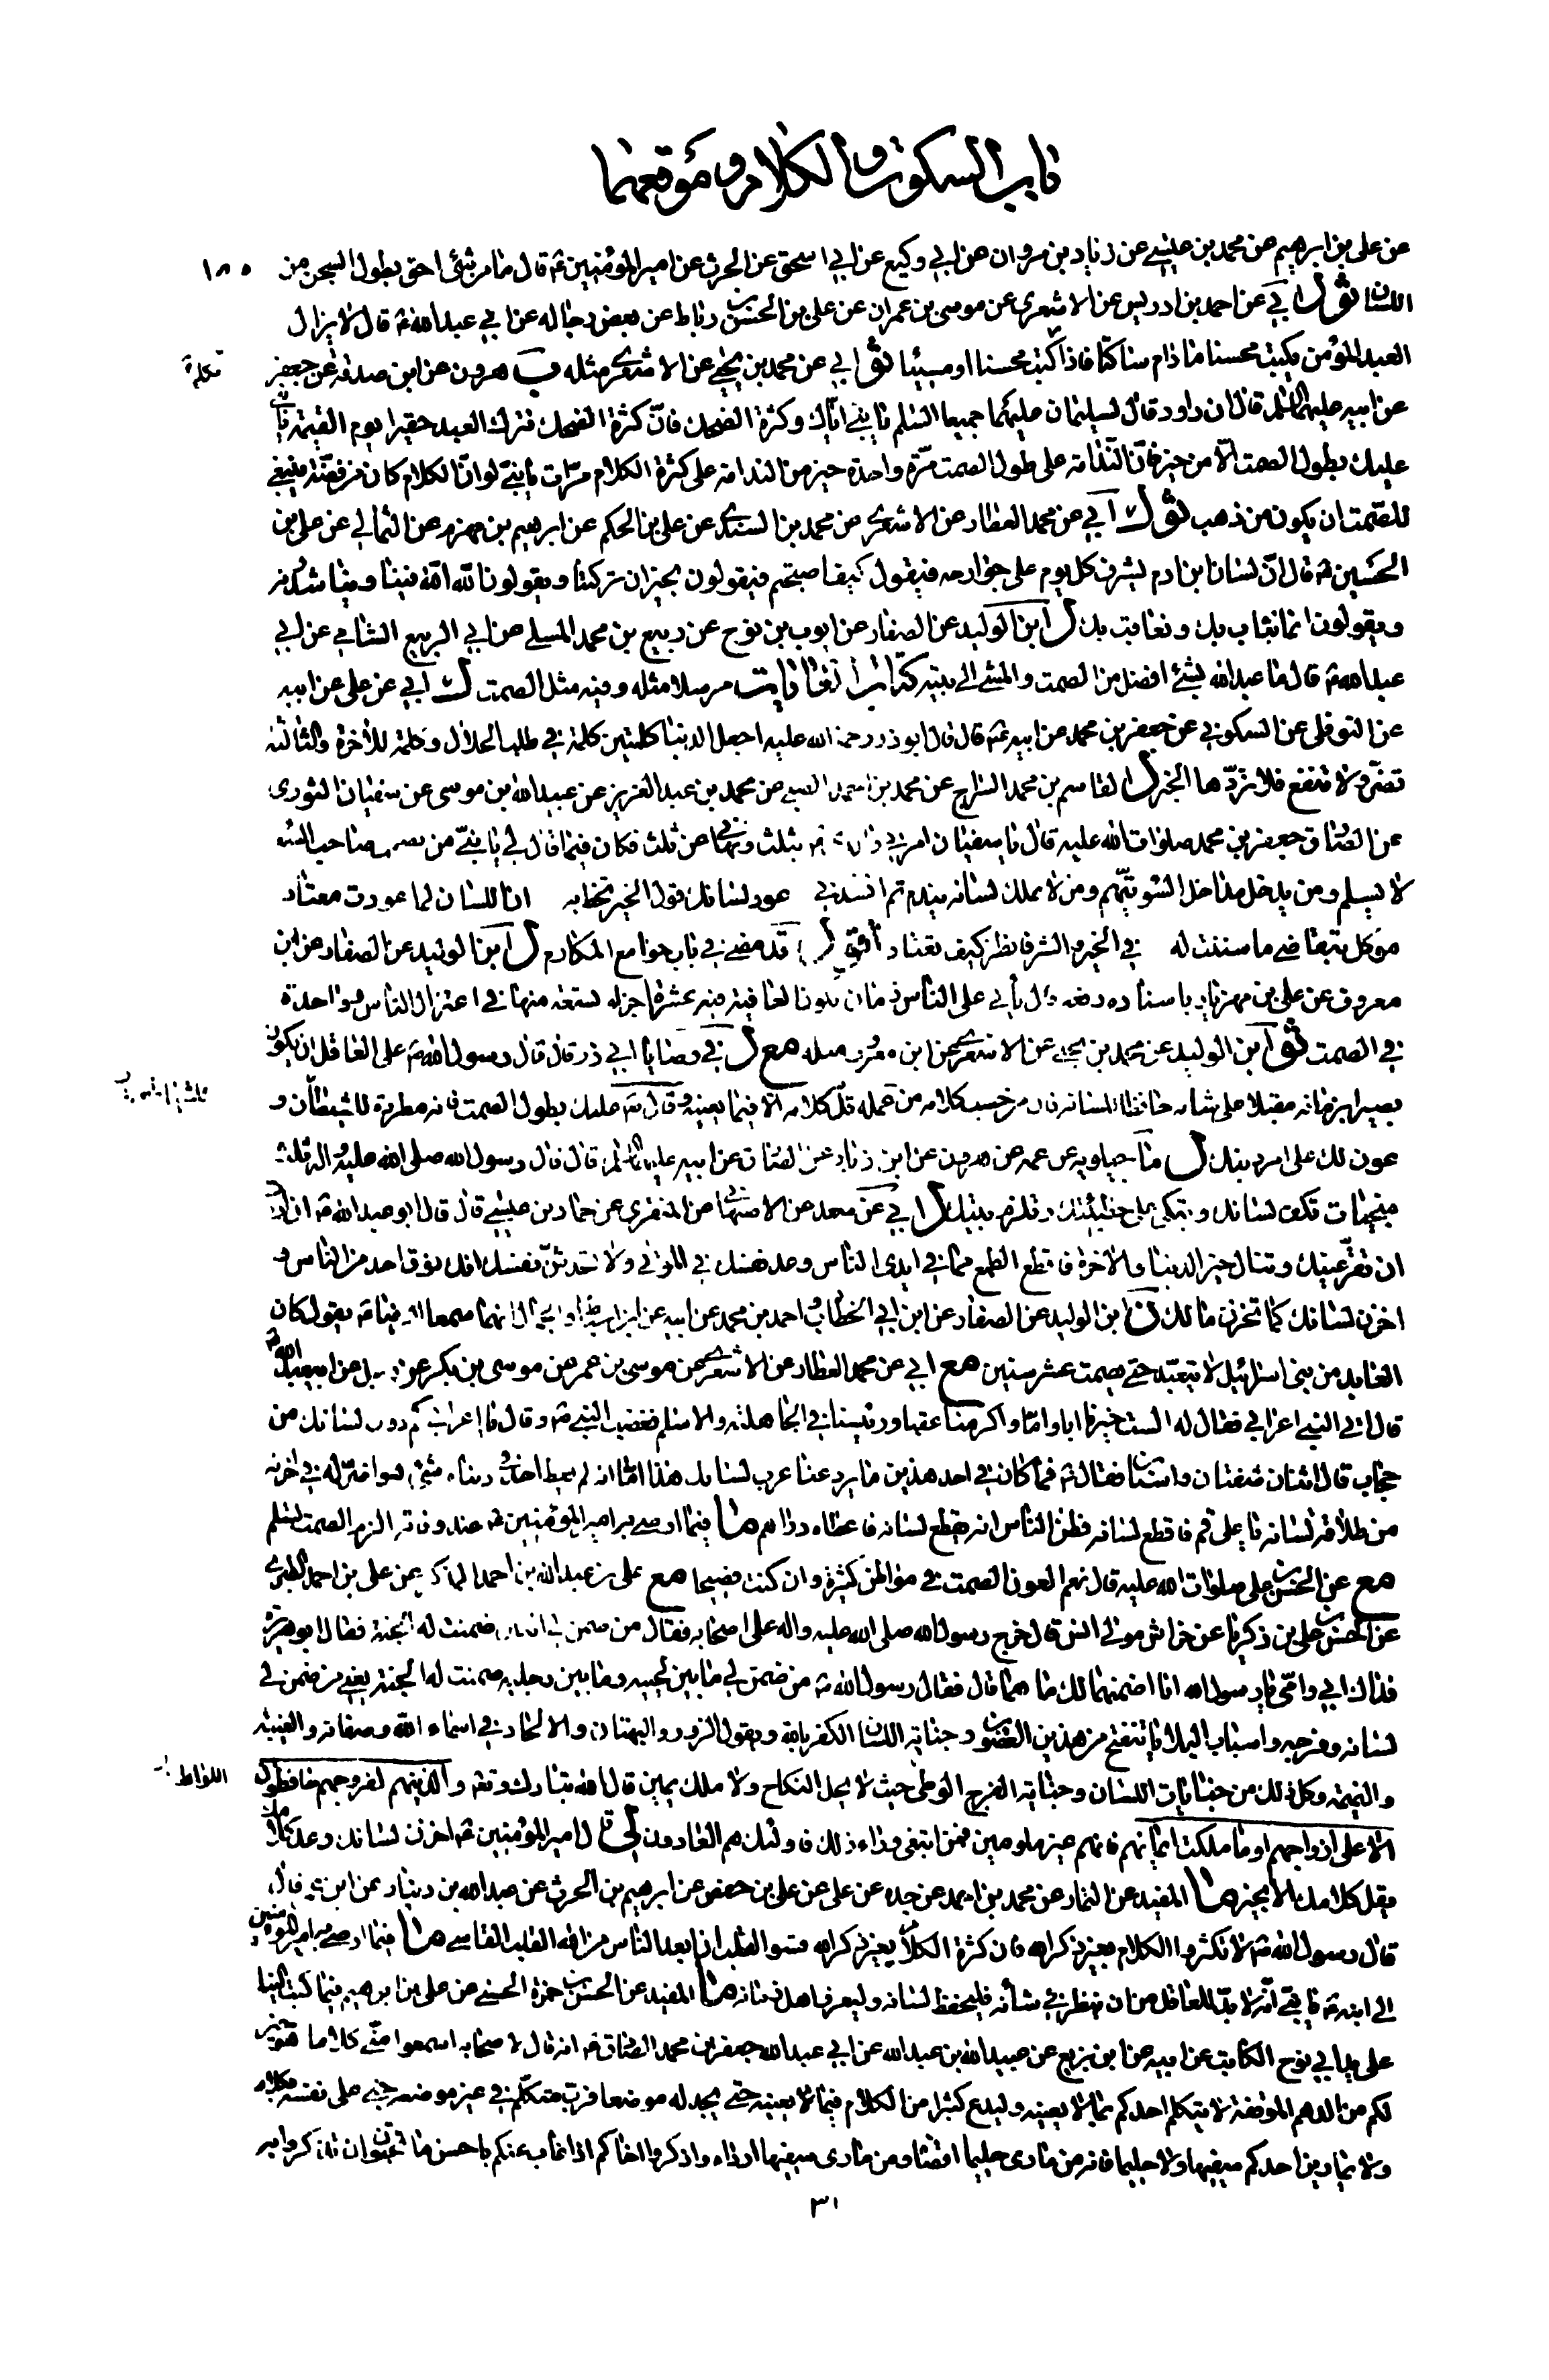 باب السكوت والكلام وموقعهما
عن علي بن ابرهيم عن محمد بن عيسى عن زياد بن مروان عن ابي وكيع عن ابي اسحق عن الحرث عن امير المؤمنين ع قال ما من شئ احق بطول السجن من
١٨٥
اللسان ثو ل ابي عن احمد بن ادريس عن الاشعرى عن موسى بن عمران عن علي بن الحسن بن رباط عن بعض رجاله عن ابي عبد الله ع قال لا يزال
العبد المؤمن يكتب محسنا ما دام ساكتا فاذا كتب محسنا او مسيئا ثو ابي عن محمد بن يحيى عن الاشعرى مثله ب هرون عن ابن صدقة عن جعفر
تكلم
عن ابيه عليهما السلم قال ان داود قال لسليمان عليهما جميعا السلم يا بني اياك وكثرة الضحك فان كثرة الضحك تترك العبد حقيرا يوم القيمة يا بني
عليك بطول الصمت الا من خير فان الندامة على طول الصمت مرة واحدة خير من الندامة على كثرة الكلام مرات يا بني لو ان الكلام كان من فضة ينبغي
للصمت ان يكون من ذهب ثو ل ابي عن محمد العطار عن الاشعرى عن محمد بن السندى عن علي بن الحكم عن ابرهيم بن مهزم عن الثمالي عن علي بن
الحسين ع قال ان لسان ابن ادم يشرف كل يوم على جوارحه فيقول كيف اصبحتم فيقولون بخير ان تركتنا ويقولون الله الله فينا ويناشدونه
ويقولون انما نثاب بك ونعاقب بك ل ابن الوليد عن الصفار عن ايوب بن نوح عن ربيع بن محمد المسلي عن ابي الربيع الشامي عن ابي
عبد الله ع قال ما عبد الله بشئ افضل من الصمت والمشي الى بيته كتاب الغايات مرسلا مثله وفيه مثل الصمت ل ابي عن علي عن ابيه
عن النوفلي عن السكوني عن جعفر بن محمد عن ابيه ع قال قال ابو ذر رحمة الله عليه اجعل الدنيا كلمتين كلمة في طلب الحلال وكلمة للاخرة والثالثة
تضر ولا تنفع فلا تردها الخبر ل القاسم بن محمد السراج عن محمد بن احمد الضبي عن محمد بن عبد العزيز عن عبيد الله بن موسى عن سفيان الثورى
عن الصادق جعفر بن محمد صلوات الله عليه قال يا سفيان امرني والدي ع بثلث ونهاني عن ثلث فكان فيما قال لي يا بني من يصحب صاحب السوء
لا يسلم ومن يدخل مداخل السوء يتهم ومن لا يملك لسانه يندم ثم انشدني عود لسانك قول الخير تحظ به ان اللسان لما عودت معتاد
موكل بتقاضي ما سننت له في الخير والشر فانظر كيف تعتاد اقول قد مضى في باب جوامع المكارم ل ابن الوليد عن الصفار عن ابن
معروف عن علي بن مهزيار باسناده رفعه قال يأتي على الناس زمان تكون العافية فيه عشرة اجزاء تسعة منها في اعتزال الناس وواحدة
في الصمت ثو ابن الوليد عن محمد بن يحيى عن الاشعرى عن ابن معروف مثله مع ل في وصايا ابي ذر قال قال رسول الله ص على العاقل ان يكون
بصيرا بزمانه مقبلا على شانه حافظا للسانه فان من حسب كلامه من عمله قل كلامه الا فيما يعنيه وقال ص عليك بطول الصمت فانه مطردة للشيطان و
عون لك على امر دينك ل ماجيلويه عن عمه عن هرون عن ابن زياد عن الصادق عن ابيه عليهما السلم قال قال رسول الله صلى الله عليه واله ثلث
منجيات تكف لسانك وتبكي على خطيئتك وتلزم بيتك ل ابي عن سعد عن الاصبهاني عن المنقرى عن حماد بن عيسى قال قال ابو عبد الله ع ان اردت
ان تقر عينك وتنال خير الدنيا والاخرة فاقطع الطمع مما في ايدى الناس وعد نفسك في الموتى ولا تحدثن نفسك انك فوق احد من الناس و
اخزن لسانك كما تخزن مالك ن ابن الوليد عن الصفار عن ابن ابي الخطاب واحمد بن محمد عن ابيه عن ابن اسباط والحجال انهما سمعا الرضا ع يقول كان
العابد من بني اسرائيل لا يتعبد حتى يصمت عشر سنين مع ابي عن محمد العطار عن الاشعرى عن موسى بن عمر عن موسى بن بكر عن رجل عن ابي عبد الله ع
قال اتى النبي اعرابي فقال له الست خيرنا ابا واما واكرمنا عقبا ورئيسنا في الجاهلية والاسلم فغضب النبي ص وقال يا اعرابي كم دون لسانك من
حجاب قال اثنان شفتان واسنان فقال ص فما كان في احد هذين ما يرد عنا غرب لسانك هذا اما انه لم يعط احد في دنياه شيئا هو اضر له في اخرته
من طلاقة لسانه يا علي قم فاقطع لسانه فظن الناس انه يقطع لسانه فاعطاه دراهم ما فيما اوصى به امير المؤمنين ع عند وفاته الزم الصمت تسلم
مع عن الحسن بن علي صلوات الله عليه قال نعم العون الصمت في مواطن كثيرة وان كنت فصيحا مع علي بن عبد الله بن احمد عن علي بن احمد الطبرى
عن الحسن بن علي بن زكريا عن خراش مولى انس قال خرج رسول الله صلى الله عليه واله على اصحابه فقال من ضمن لي اثنين ضمنت له الجنة فقال ابو هريرة
فداك ابي وامي يا رسول الله انا اضمنهما لك ما هما قال فقال رسول الله ص من ضمن لي ما بين لحييه وما بين رجليه ضمنت له الجنة يعني من ضمن لي
لسانه وفرجه واسباب البلايا تنفتح من هذين العضوين وجناية اللسان الكفر بالله وبقول الزور والبهتان والالحاد في اسماء الله وصفاته والغيبة
والنميمة وكل ذلك من جنايات اللسان وجناية الفرج الوطئ حيث لا يحل النكاح ولا ملك يمين قال الله تبارك وتعالى والذينهم لفروجهم حافظون
اللواط
الا على ازواجهم او ما ملكت ايمانهم فانهم غير ملومين فمن ابتغى وراء ذلك فاولئك هم العادون لي قال امير المؤمنين ع اخزن لسانك وعد كلامك
يقل كلامك الا بخير ما المفيد عن التمار عن محمد بن احمد عن جده عن علي عن علي بن حفص عن ابرهيم بن الحرث عن عبد الله بن دينار عن ابن عمر قال
قال رسول الله ص لا تكثروا الكلام بغير ذكر الله فان كثرة الكلام بغير ذكر الله قسو القلب ان ابعد الناس من الله القلب القاسي ما فيما اوصى به امير المؤمنين
الى ابنه ع يا بني انه لا بد للعاقل من ان ينظر في شأنه فليحفظ لسانه وليعرف اهل زمانه ما المفيد عن الحسن بن حمزة الحسني عن علي بن ابرهيم فيما كتب الينا
على يد ابي نوح الكاتب عن ابيه عن ابن بزيع عن عبيد الله بن عبد الله عن ابي عبد الله جعفر بن محمد الصادق ع انه قال لاصحابه اسمعوا مني كلاما هو خير
لكم من الدهم الموقفة لا يتكلم احدكم بما لا يعنيه وليدع كثيرا من الكلام فيما لا يعنيه حتى يجد له موضعا فرب متكلم في غير موضعه جنى على نفسه بكلامه
ولا يمارين احدكم سفيها ولا حليما فانه من مارى حليما اقصاه ومن مارى سفيها ارداه واذكروا اخاكم اذا غاب عنكم باحسن ما تحبون ان تذكروا به
٣١